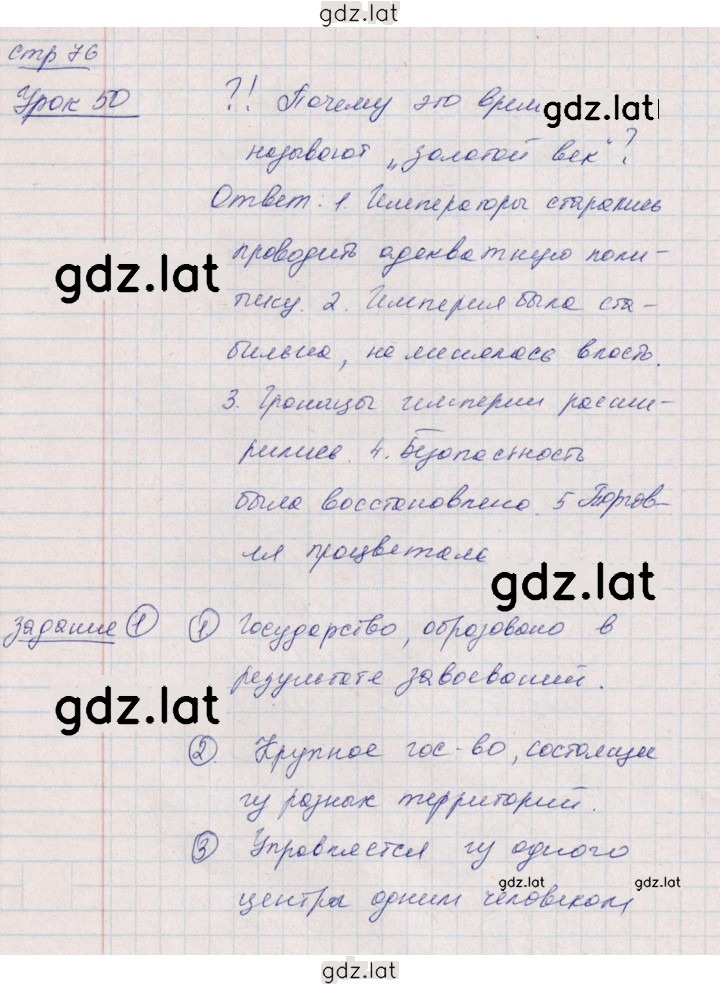 gdz.lat
стр 76
Урок 50 ?! Почему это врем gdz.lat
называют „золотой век"?
Ответ: 1. Императоры старались
проводить адекватную поли-
gdz.lat
тику. 2. Империя была ста-
бильна, не менялась власть.
3. Границы империи расши-
рились. 4. Безопасность
была восстановлена. 5 Торгов-
ля процветала
gdz.lat
задание 1 1 Государство, образовано в
результате завоеваний.
gdz.lat
2. Крупное гос-во, состоящее
из разных территорий.
3 Управляется из одного
gdz.lat gdz.lat
центра одним человеком
gdz.lat